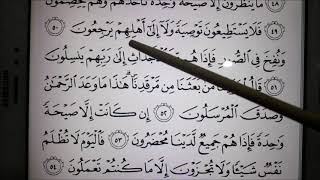 ٤٨ مَا يَنظُرُونَ إِلَّا صَيْحَةً وَاحِدَةً تَأْخُذُهُمْ وَهُمْ يَخِصِّمُونَ
٤٩ فَلَا يَسْتَطِيعُونَ تَوْصِيَةً وَلَا إِلَىٰ أَهْلِهِمْ يَرْجِعُونَ ٥٠
وَنُفِخَ فِي الصُّورِ فَإِذَا هُم الْأَجْدَاثِ إِلَىٰ رَبِّهِمْ يَنسِلُونَ
٥١ مَن بَعَثَنَا مِن مَّرْقَدِنَا هَٰذَا مَا وَعَدَ
وَصَدَقَ الْمُرْسَلُونَ ٥٢ إِن كَانَتْ إِلَّا صَيْحَةً
وَاحِدَةً فَإِذَا هُمْ جَمِيعٌ لَّدَيْنَا مُحْضَرُونَ ٥٣ فَالْيَوْمَ لَا تُظْلَمُ
نَفْسٌ شَيْئًا وَلَا تُجْزَوْنَ إِلَّا مَا كُنتُمْ تَعْمَلُونَ ٥٤